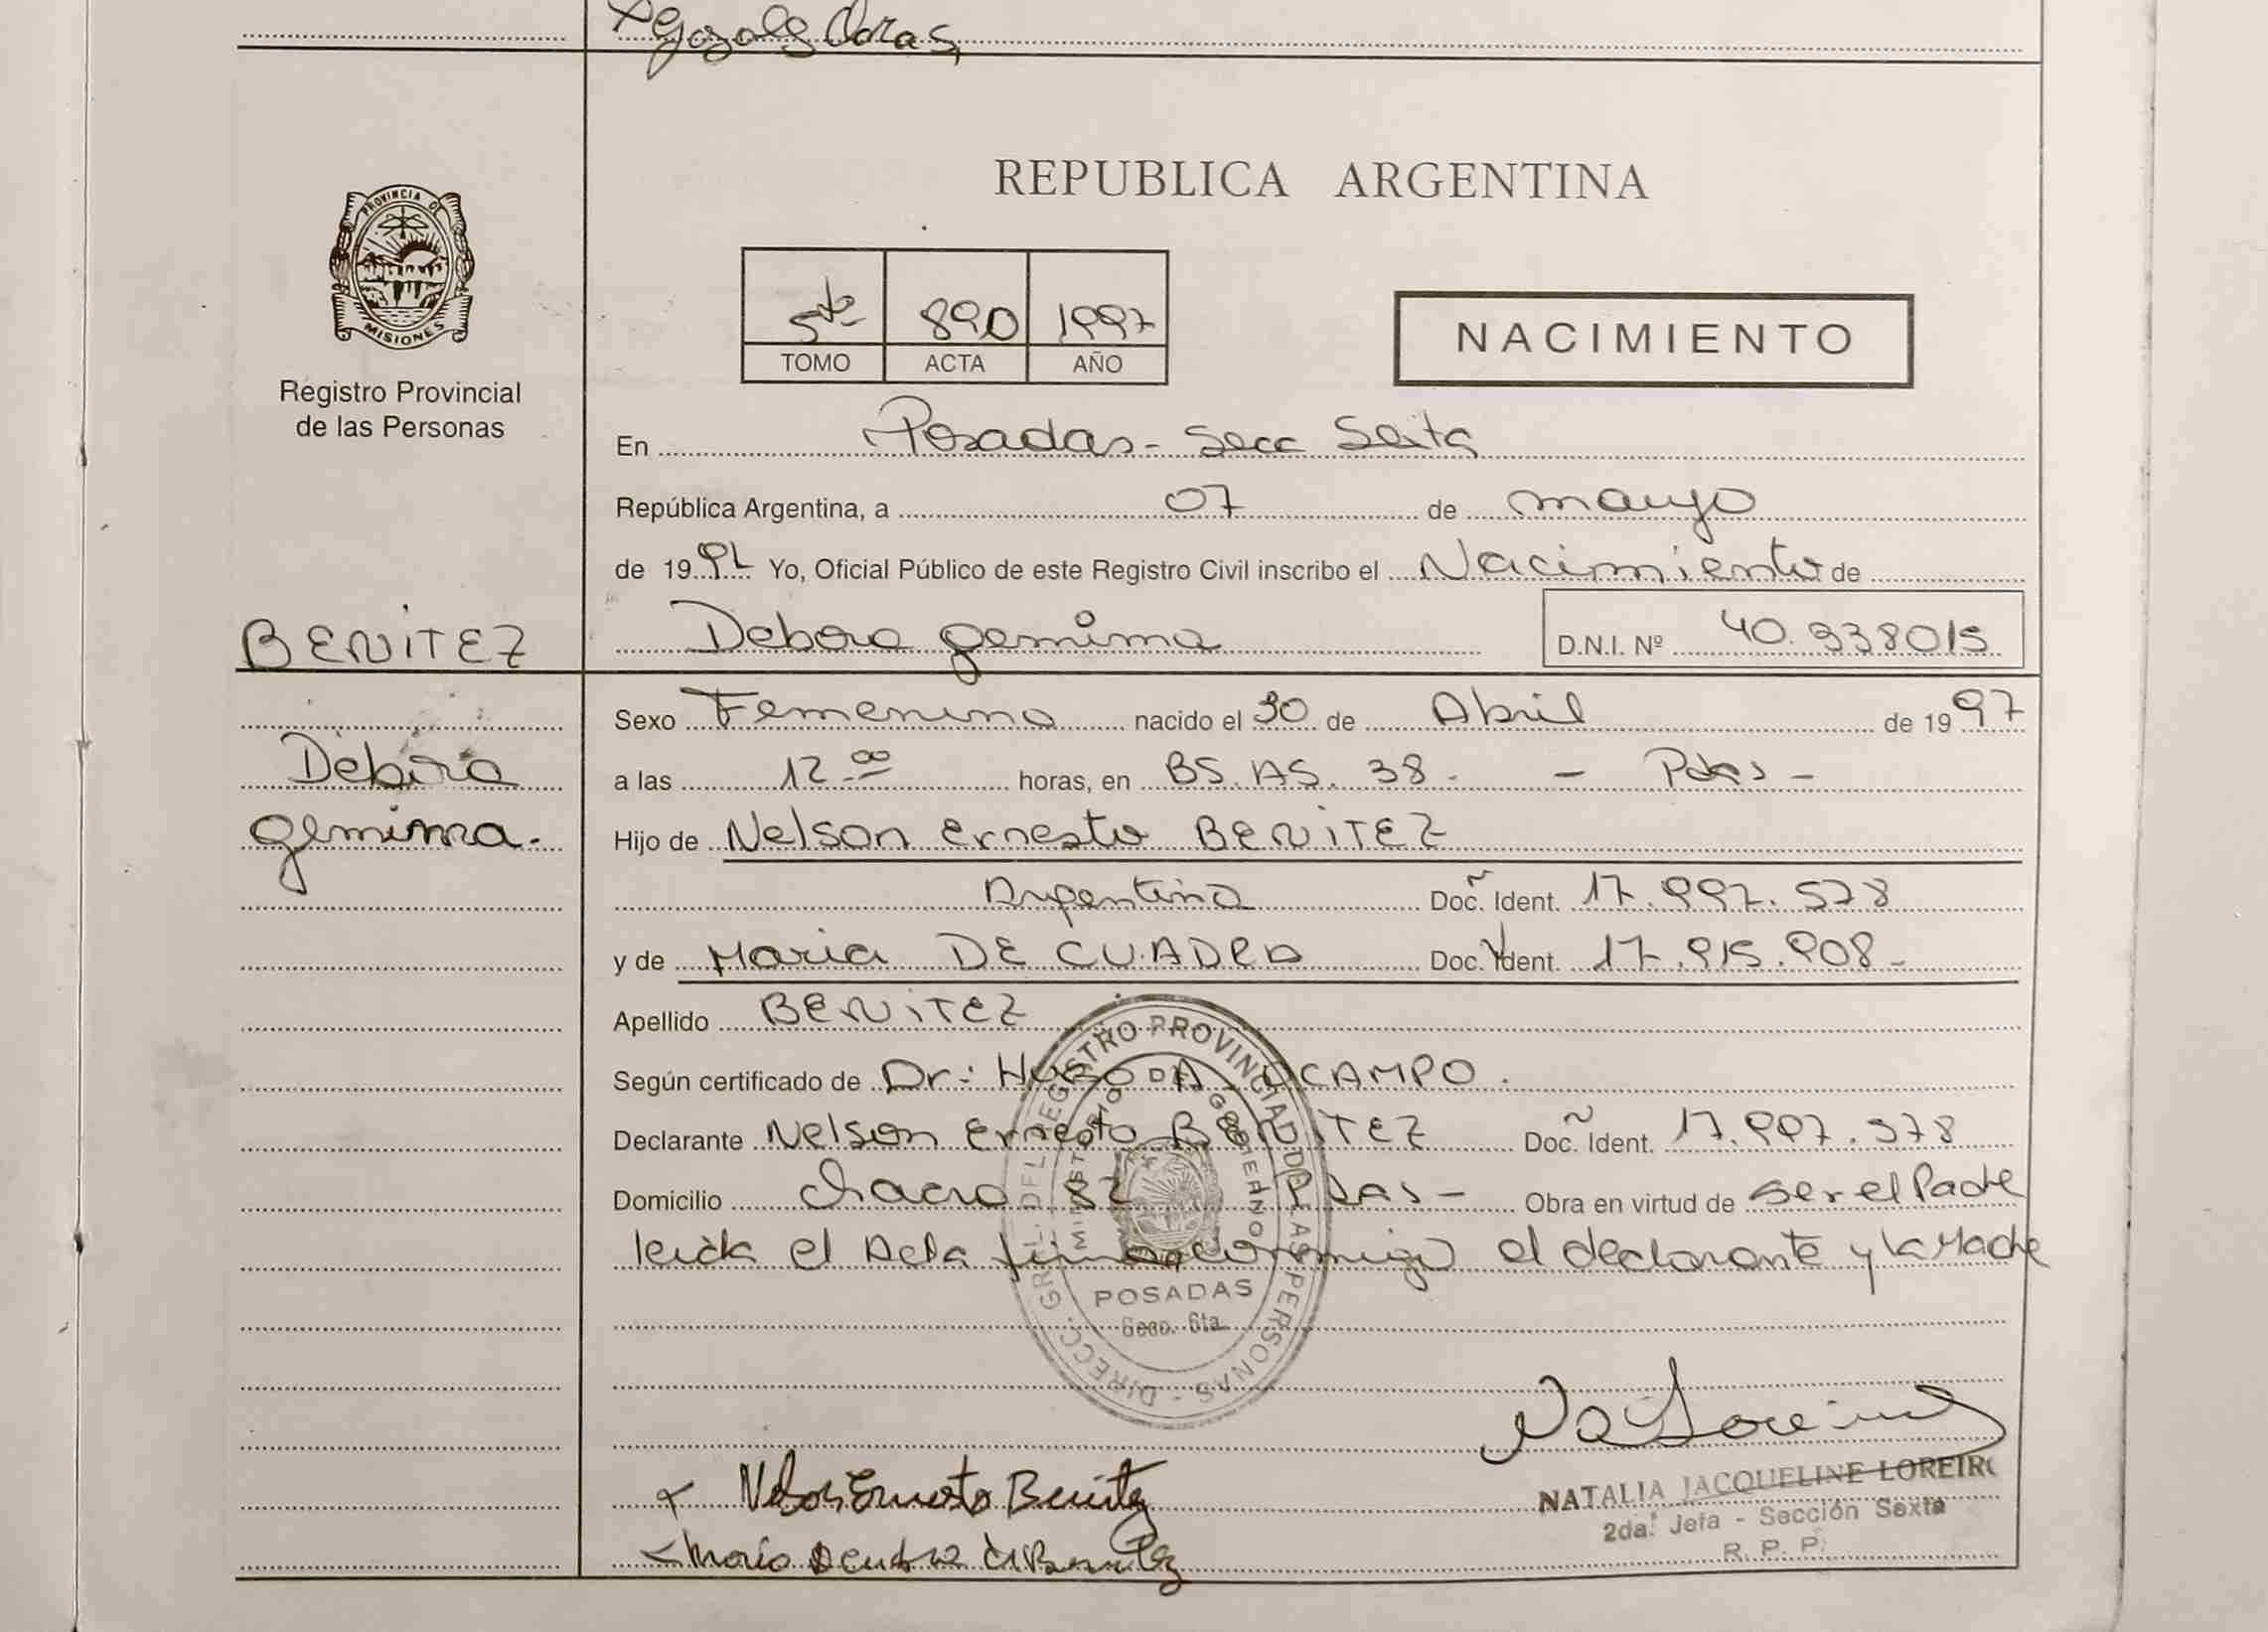 REPUBLICA ARGENTINA
PROVINCIA DE
MISIONES
Registro Provincial
de las Personas
5to 890 1997
TOMO ACTA AÑO
NACIMIENTO
En Posadas - Secc Sexta
República Argentina, a 07 de mayo
de 1997 Yo, Oficial Público de este Registro Civil inscribo el Nacimiento de
BENITEZ
Debora gemima
D.N.I. Nº 40.338015
Debora
gemima.
Sexo Femenino nacido el 30 de Abril de 1997
a las 12.00 horas, en BS.AS. 38. - Pdas -
Hijo de Nelson Ernesto BENITEZ
Argentino Doc. Ident. 17.997.578
y de Maria DE CUADRA Doc. Ident. 17.915.908-
Apellido BENITEZ
Según certificado de Dr: HUGO DA OCAMPO.
Declarante Nelson Ernesto BENITEZ Doc. Ident. 17.997.578
Domicilio Chacra 82 Pdas- Obra en virtud de ser el Padre
leida el Acta firma conmigo el declarante y la Madre
DIRECC. GRAL. DEL REGISTRO PROVINCIAL DE LAS PERSONAS -
MINISTERIO DE GOBIERNO
POSADAS
Secc. 6ta.
Nelson Ernesto Benitez
NATALIA JACQUELINE LOREIRO
2da. Jefa - Sección Sexta
R. P. P.